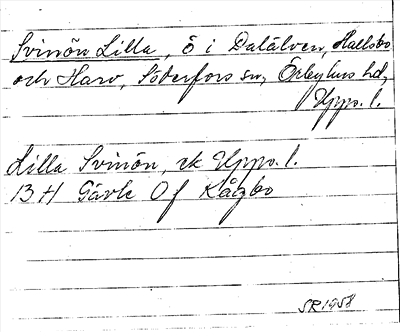 Svinön Lilla, ö i Dalälven, Hallsbo
och Harv, Söderfors sn, Örbyhus hd,
Upps. l.
Lilla Svinön, ek Upps. l.
13 H Gävle Of Kågbo
SR 1958